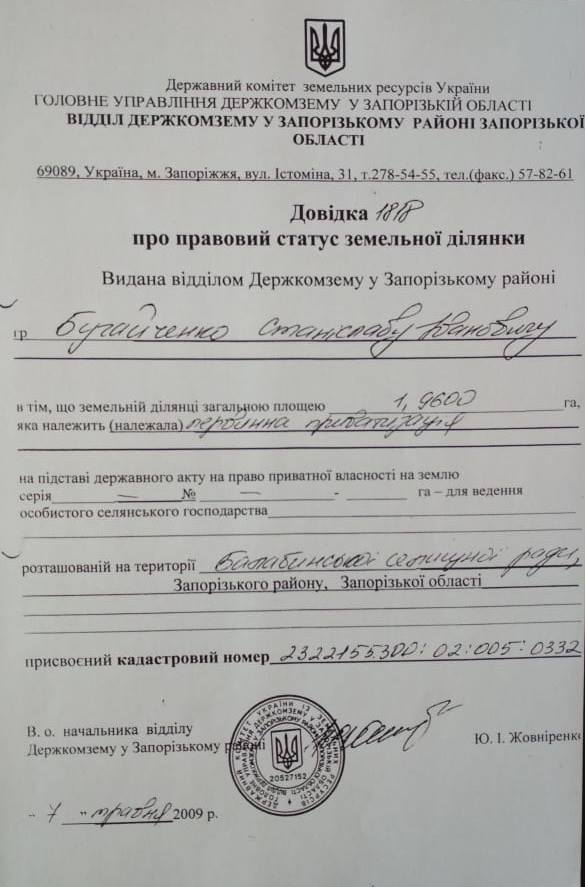 Державний комітет земельних ресурсів України
ГОЛОВНЕ УПРАВЛІННЯ ДЕРЖКОМЗЕМУ У ЗАПОРІЗЬКІЙ ОБЛАСТІ
ВІДДІЛ ДЕРЖКОМЗЕМУ У ЗАПОРІЗЬКОМУ РАЙОНІ ЗАПОРІЗЬКОЇ
ОБЛАСТІ
69089, Україна, м. Запоріжжя, вул. Істоміна, 31, т.278-54-55, тел.(факс.) 57-82-61
Довідка
про правовий статус земельної ділянки
Видана відділом Держкомзему у Запорізькому районі
гр Бугайченко Станіславу Івановичу
в тім, що земельній ділянці загальною площею 1,9600 га,
яка належить (належала) первинна приватизація
на підставі державного акту на право приватної власності на землю
серія — № — - га – для ведення
особистого селянського господарства
розташованій на території Балабинської селищної ради,
Запорізького району, Запорізької області
присвоєний кадастровий номер 2322155300:02:005:0332
В. о. начальника відділу
Держкомзему у Запорізькому районі Ю. І. Жовніренко
20527152
" 7 " травня 2009 р.